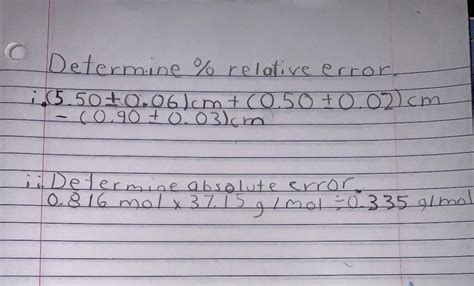 C
Determine % relative error.
i. (5.50 ± 0.06) cm + (0.50 ± 0.02) cm
- (0.90 ± 0.03) cm
ii. Determine absolute error.
0.816 mol x 37.15 g/mol ÷ 0.335 g/mol